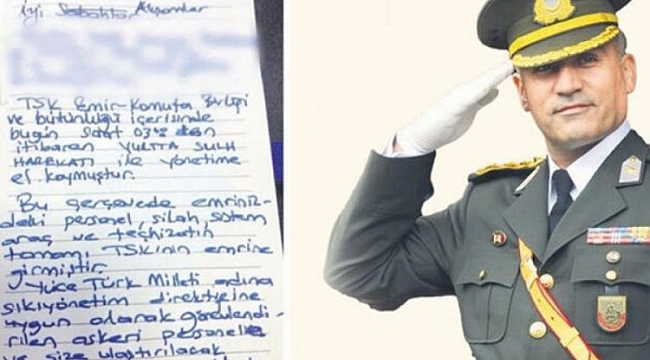 İyi Sabahlar Akşamlar
TSK Emir-Komuta Birliği
ve bütünlüğü içerisinde
bugün saat 03:00 dan
itibaren YURTTA SULH
HAREKATI ile yönetime
el koymuştur.
Bu çerçevede emriniz-
deki personel, silah, sistem
araç ve teçhizatın
tamamı TSKnın emrine
girmiştir.
Yüce Türk Milleti adına
sıkıyönetim direktifine
uygun olarak görevlendi-
rilen askeri personele
ve size ulaştırılacak